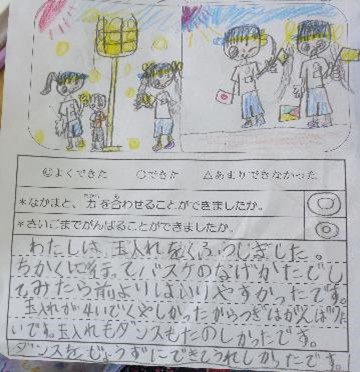 ◎よくできた　○できた　△あまりできなかった
＊なかまと、力を合わせることができましたか。
ちから　あ
◎
＊さいごまでがんばることができましたか。
◎
わたしは、玉入れをくふうしました。
ちかくに行ってバスケのなげかたでし
てみたら前よりはいりやすかったです。
玉入れが4いでくやしかったからつぎはがんばりた
いです。玉入れもダンスもたのしかったです。
ダンスをじょうずにできてうれしかったです。